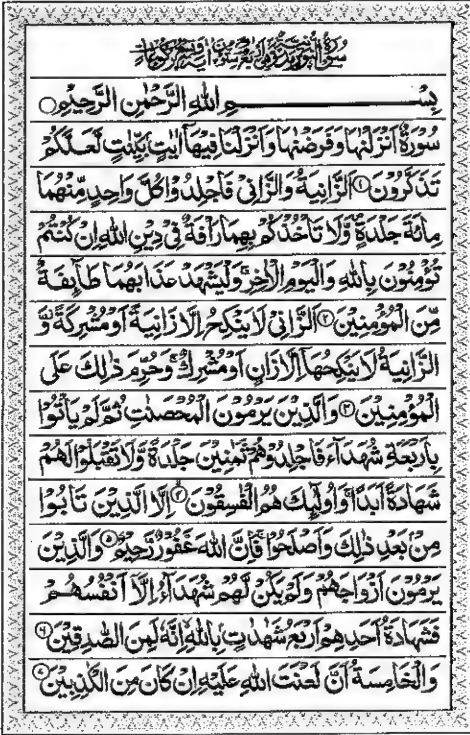 سُوْرَةُ النُّوْرِ مَدَنِيَّةٌ وَّهِيَ اَرْبَعٌ وَّسِتُّوْنَ اٰيَةً وَّتِسْعُ رُكُوْعَاتٍ
بِسْــــــــــــمِ اللّٰهِ الرَّحْمٰنِ الرَّحِيْمِ
سُوْرَةٌ اَنْزَلْنٰهَا وَفَرَضْنٰهَا وَاَنْزَلْنَا فِيْهَاۤ اٰيٰتٍۭ بَيِّنٰتٍ لَّعَلَّكُمْ
تَذَكَّرُوْنَ ۝۱ اَلزَّانِيَةُ وَالزَّانِيْ فَاجْلِدُوْا كُلَّ وَاحِدٍ مِّنْهُمَا
مِائَةَ جَلْدَةٍ ۪ وَّلَا تَاْخُذْكُمْ بِهِمَا رَاْفَةٌ فِيْ دِيْنِ اللّٰهِ اِنْ كُنْتُمْ
تُؤْمِنُوْنَ بِاللّٰهِ وَالْيَوْمِ الْاٰخِرِ ۚ وَلْيَشْهَدْ عَذَابَهُمَا طَآىِٕفَةٌ
مِّنَ الْمُؤْمِنِيْنَ ۝۲ اَلزَّانِيْ لَا يَنْكِحُ اِلَّا زَانِيَةً اَوْ مُشْرِكَةً ۫ وَّ
الزَّانِيَةُ لَا يَنْكِحُهَاۤ اِلَّا زَانٍ اَوْ مُشْرِكٌ ۚ وَحُرِّمَ ذٰلِكَ عَلَى
الْمُؤْمِنِيْنَ ۝۳ وَالَّذِيْنَ يَرْمُوْنَ الْمُحْصَنٰتِ ثُمَّ لَمْ يَاْتُوْا
بِاَرْبَعَةِ شُهَدَآءَ فَاجْلِدُوْهُمْ ثَمٰنِيْنَ جَلْدَةً وَّلَا تَقْبَلُوْا لَهُمْ
شَهَادَةً اَبَدًا ۚ وَاُولٰٓىِٕكَ هُمُ الْفٰسِقُوْنَ ۝۴ اِلَّا الَّذِيْنَ تَابُوْا
مِنْۢ بَعْدِ ذٰلِكَ وَاَصْلَحُوْا ۚ فَاِنَّ اللّٰهَ غَفُوْرٌ رَّحِيْمٌ ۝۵ وَالَّذِيْنَ
يَرْمُوْنَ اَزْوَاجَهُمْ وَلَمْ يَكُنْ لَّهُمْ شُهَدَآءُ اِلَّاۤ اَنْفُسُهُمْ
فَشَهَادَةُ اَحَدِهِمْ اَرْبَعُ شَهٰدٰتٍۭ بِاللّٰهِ ۙ اِنَّهٗ لَمِنَ الصّٰدِقِيْنَ ۝۶
وَالْخَامِسَةُ اَنَّ لَعْنَتَ اللّٰهِ عَلَيْهِ اِنْ كَانَ مِنَ الْكٰذِبِيْنَ ۝۷